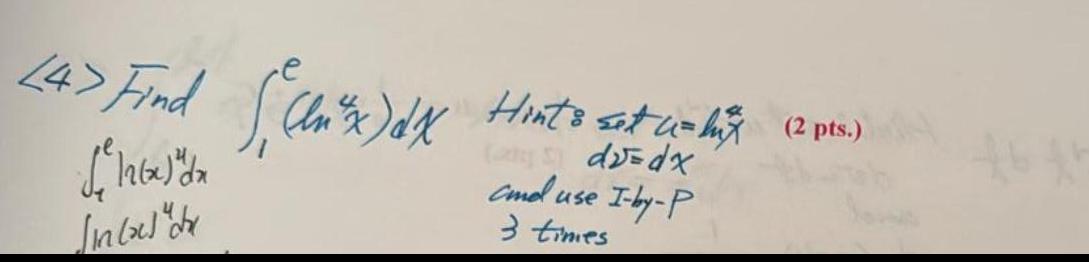 <4> Find ∫₁ᵉ (ln⁴x)dx Hint: set u=ln⁴x (2 pts.)
dv=dx
and use I-by-P
3 times
∫₁ᵉ ln(x)⁴dx
∫ln(x)⁴dx